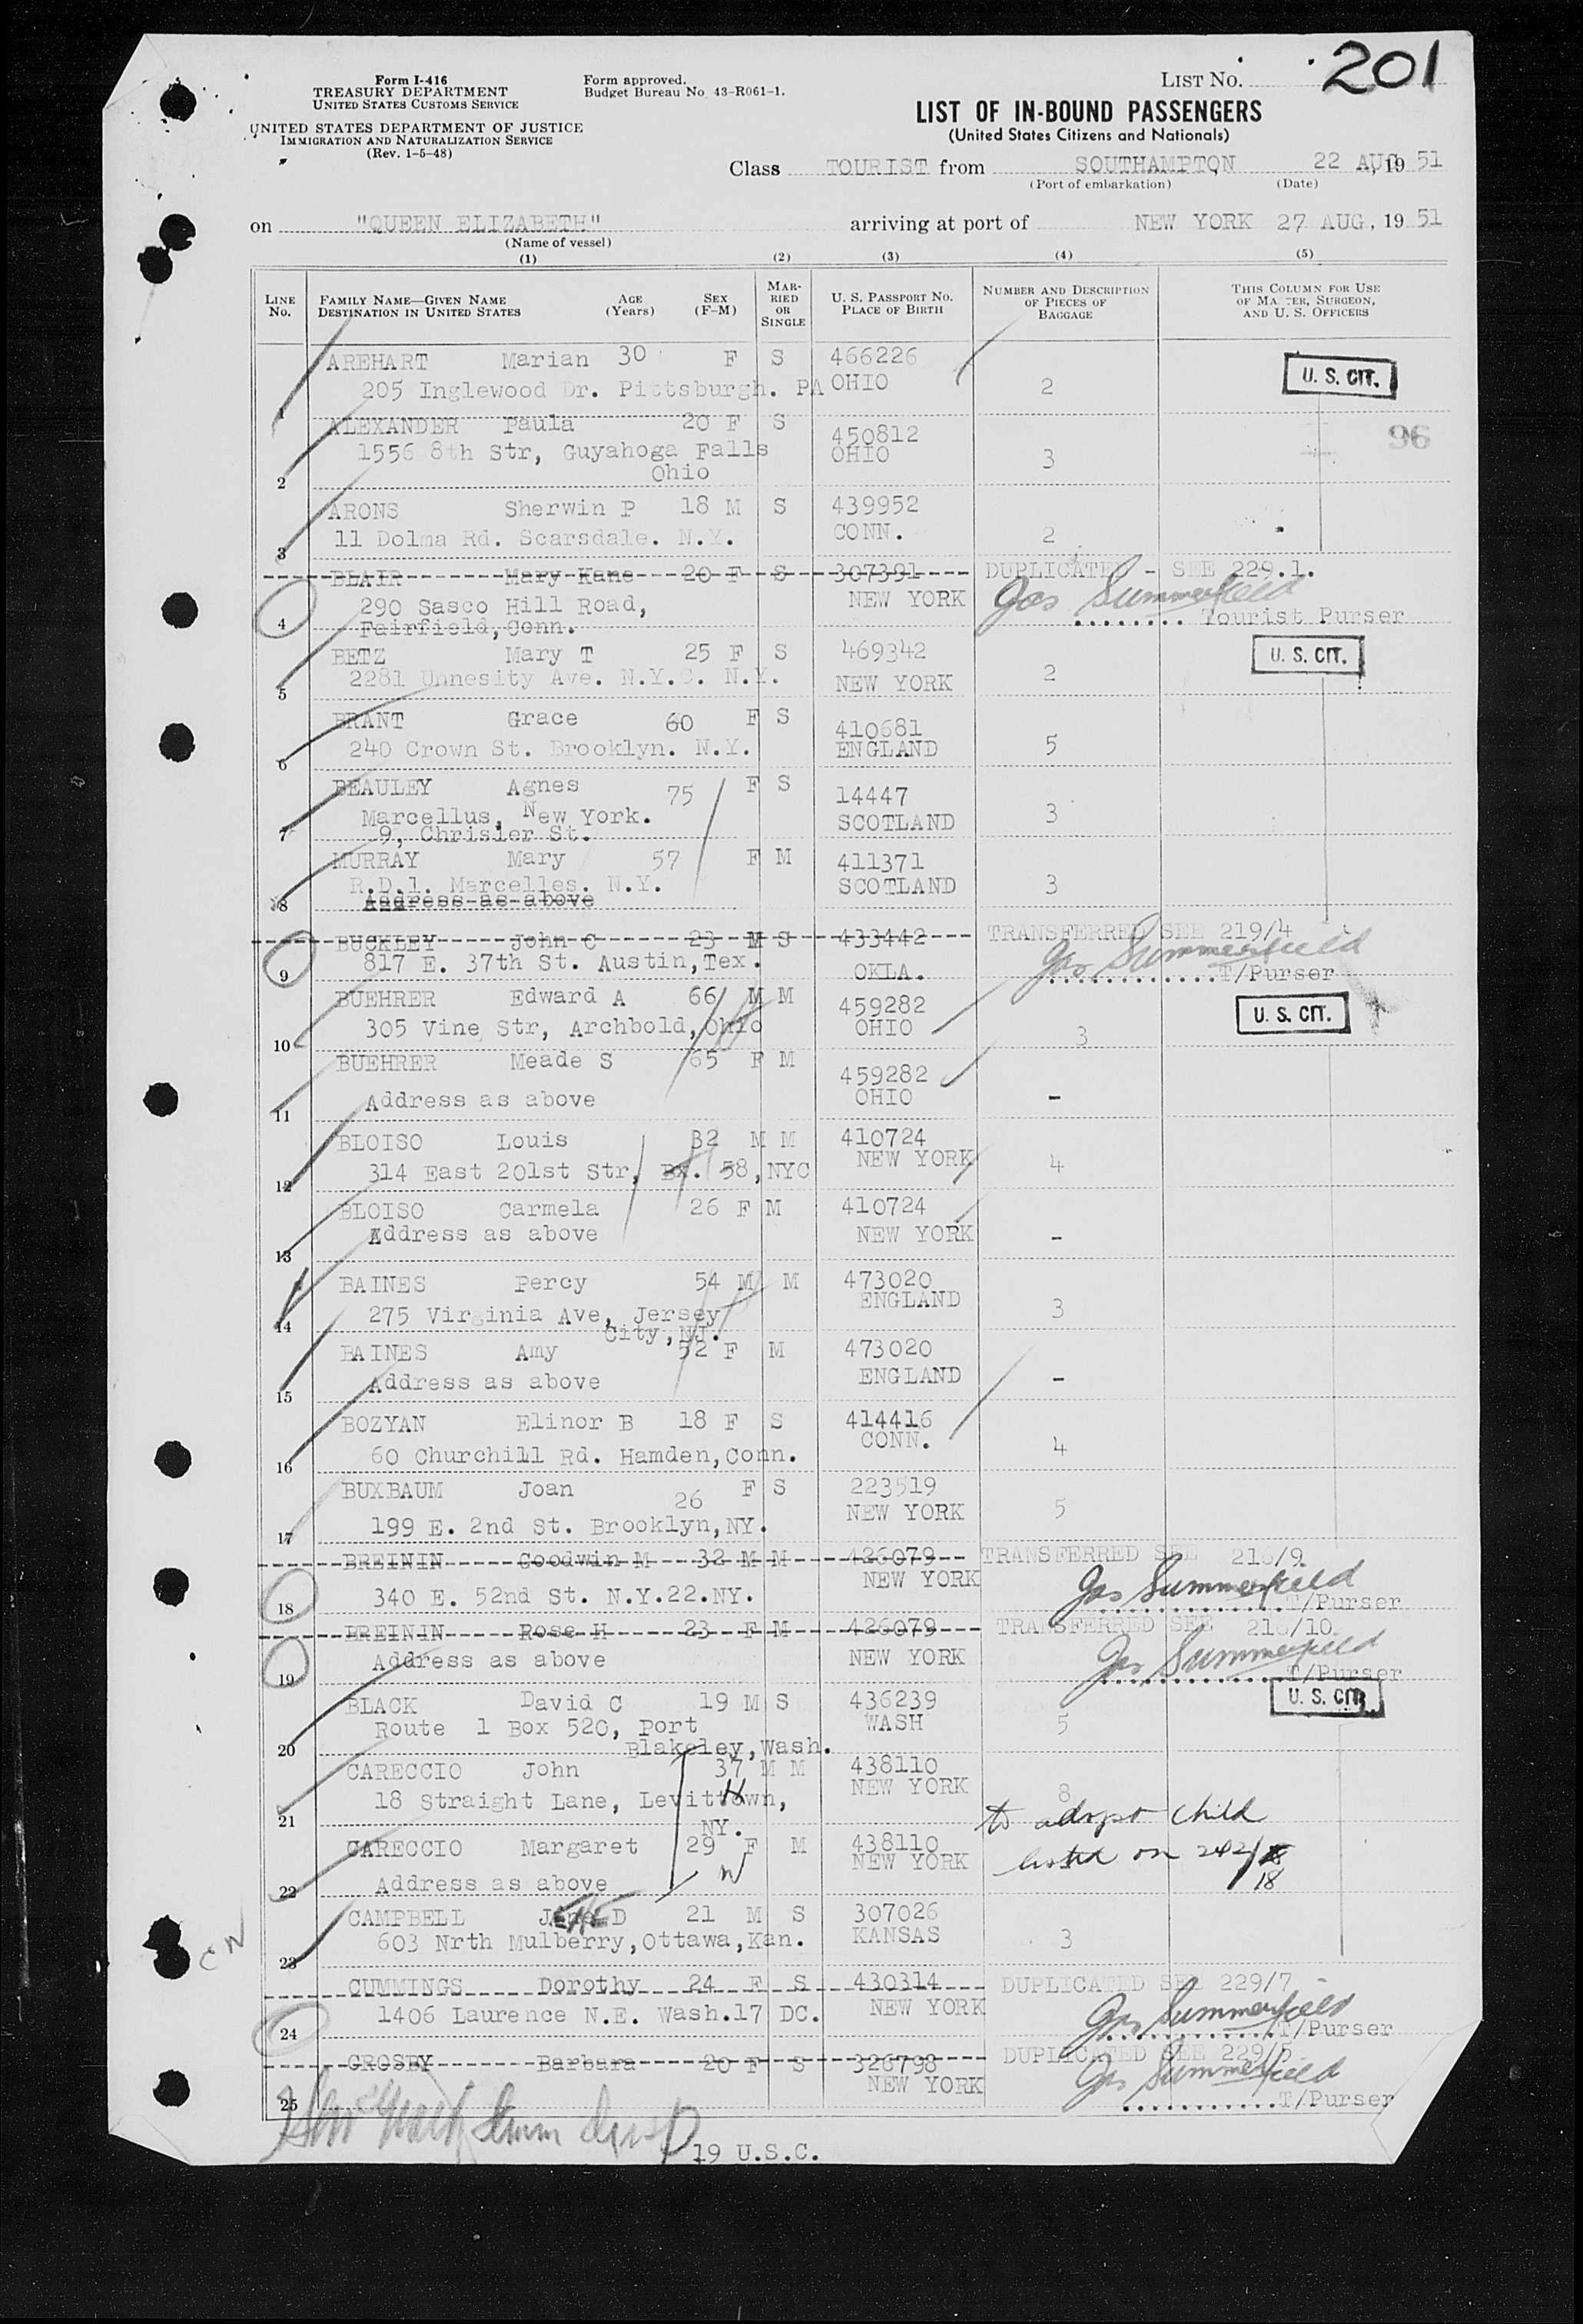 Form I-416
TREASURY DEPARTMENT
UNITED STATES CUSTOMS SERVICE
UNITED STATES DEPARTMENT OF JUSTICE
IMMIGRATION AND NATURALIZATION SERVICE
(Rev. 1-5-48)
Form approved.
Budget Bureau No. 43-R061-1.
LIST No. 201
LIST OF IN-BOUND PASSENGERS
(United States Citizens and Nationals)
Class TOURIST from SOUTHAMPTON 22 AUG, 19 51
(Port of embarkation) (Date)
on "QUEEN ELIZABETH" arriving at port of NEW YORK 27 AUG, 19 51
(Name of vessel)
(1) (2) (3) (4) (5)
LINE No. FAMILY NAME—GIVEN NAME DESTINATION IN UNITED STATES AGE (Years) SEX (F-M) MARRIED OR SINGLE U. S. PASSPORT NO. PLACE OF BIRTH NUMBER AND DESCRIPTION OF PIECES OF BAGGAGE THIS COLUMN FOR USE OF MASTER, SURGEON, AND U. S. OFFICERS
1 AREHART Marian 30 F S 466226
205 Inglewood Dr. Pittsburgh. PA OHIO 2 U. S. CIT.
2 ALEXANDER Paula 20 F S 450812 96
1556 8th Str, Guyahoga Falls OHIO 3
Ohio
3 ARONS Sherwin P 18 M S 439952
11 Dolma Rd. Scarsdale. N.Y. CONN. 2
4 BLAIR Mary Kane 20 F S 307391 DUPLICATED - SEE 229.1.
290 Sasco Hill Road, NEW YORK Jas Summerfield
Fairfield, Conn. Tourist Purser
5 BETZ Mary T 25 F S 469342 U. S. CIT.
2281 Unnesity Ave. N.Y.C. N.Y. NEW YORK 2
6 BRANT Grace 60 F S 410681
240 Crown St. Brooklyn. N.Y. ENGLAND 5
7 BEAULEY Agnes 75 F S 14447
Marcellus, New York. SCOTLAND 3
9, Chrisler St.
8 MURRAY Mary 57 F M 411371
R.D.1. Marcelles. N.Y. SCOTLAND 3
Address as above
9 BUCKLEY John C 23 M S 433442 TRANSFERRED SEE 219/4
817 E. 37th St. Austin,Tex. OKLA. Jas Summerfield
T/Purser
10 BUEHRER Edward A 66 M M 459282 U. S. CIT.
305 Vine Str, Archbold,Ohio OHIO 3
11 BUEHRER Meade S 65 F M 459282
Address as above OHIO -
12 BLOISO Louis 32 M M 410724
314 East 201st Str, Bx. 58,NYC NEW YORK 4
13 BLOISO Carmela 26 F M 410724
Address as above NEW YORK -
14 BAINES Percy 54 M M 473020
275 Virginia Ave, Jersey ENGLAND 3
City,NJ.
15 BAINES Amy 52 F M 473020
Address as above ENGLAND -
16 BOZYAN Elinor B 18 F S 414416
60 Churchill Rd. Hamden,Conn. CONN. 4
17 BUXBAUM Joan 26 F S 223519
199 E. 2nd St. Brooklyn,NY. NEW YORK 5
18 BREININ Goodwin M 32 M M 426079 TRANSFERRED SEE 216/9
340 E. 52nd St. N.Y.22.NY. NEW YORK Jas Summerfield
T/Purser
19 BREININ Rose H 23 F M 426079 TRANSFERRED SEE 216/10
Address as above NEW YORK Jas Summerfield
T/Purser
20 BLACK David C 19 M S 436239 U. S. CIT.
Route 1 Box 520, Port WASH 5
Blakeley,Wash.
21 CARECCIO John 37 M M 438110
18 Straight Lane, Levittown, H NEW YORK 8
NY. to adopt child
22 CARECCIO Margaret 29 F M 438110
NEW YORK listed on 242/18
Address as above W
23 CAMPBELL D 21 M S 307026
603 Nrth Mulberry,Ottawa,Kan. KANSAS 3
CN
24 CUMMINGS Dorothy 24 F S 430314 DUPLICATED SEE 229/7
1406 Laurence N.E. Wash.17 DC. NEW YORK Jas Summerfield
T/Purser
25 CROSBY Barbara 20 F S 326798 DUPLICATED SEE 229/5
NEW YORK Jas Summerfield
T/Purser
19 U.S.C.